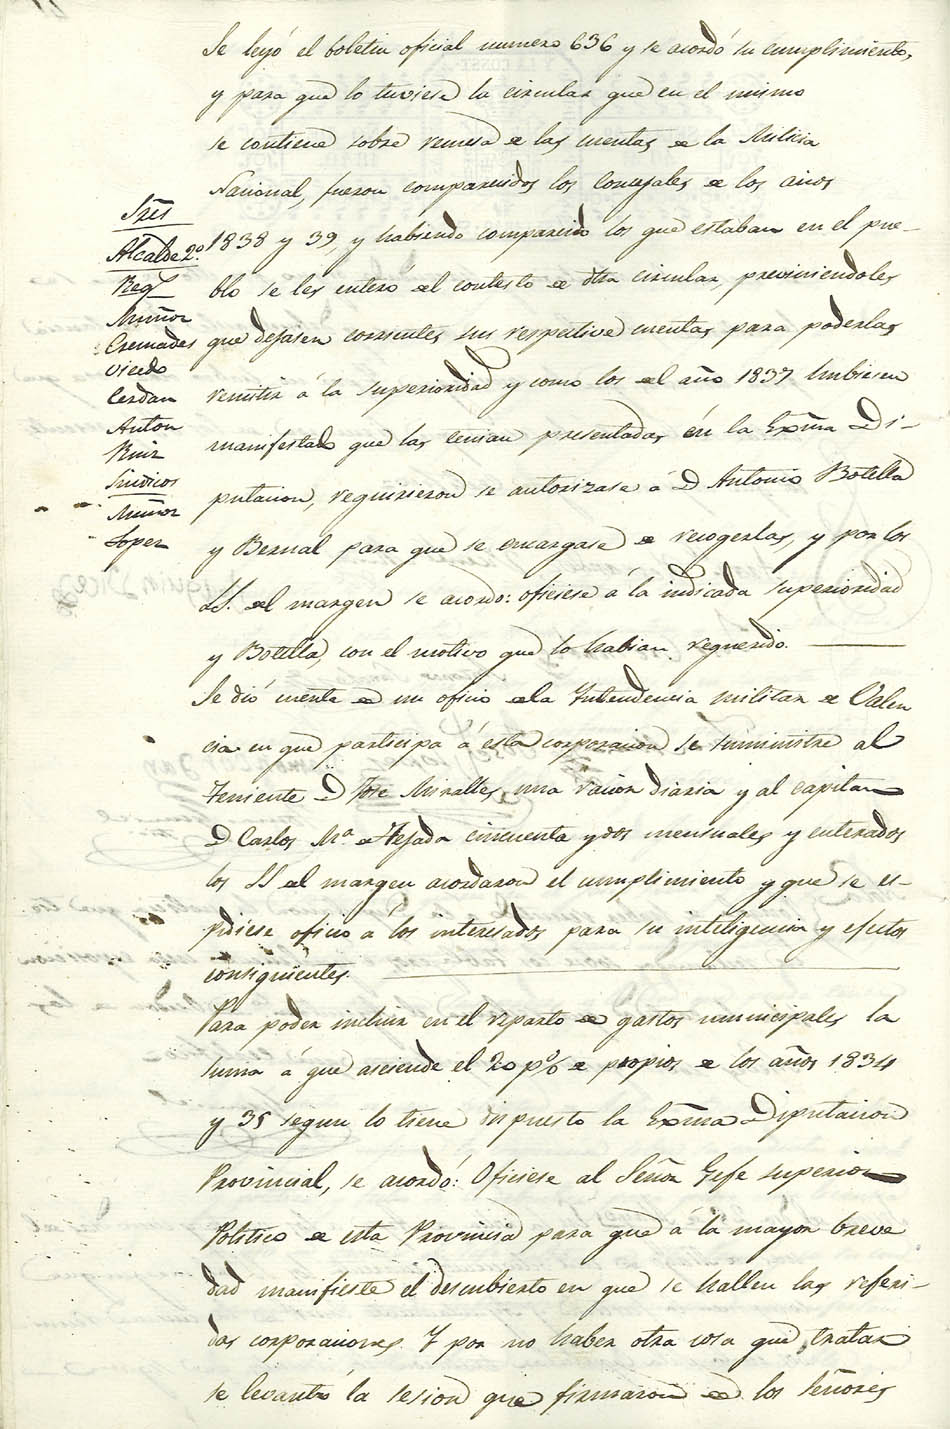 Se leyó el boletin oficial numero 636 y se acordó su cumplimiento,
y para que lo tuviese la circular que en el mismo
se contiene sobre remesa de las cuentas de la Milicia
Nacional, fueron comparecidos los concejales de los años
1838 y 39, y habiendo comparecido los que estaban en el pue-
blo se les enteró del contesto de dha circular, previniendoles
que dejasen corrientes sus respective cuentas para poderlas
remitir á la superioridad y como los del año 1837 hubiesen
manifestado que las tenian presentadas én la Exma Di-
putacion, requirieron se autorizase á D Antonio Botella
y Bernal para que se encargase de recogerlas, y por los
SS. del margen se acordo: oficiese á la indicada superioridad
y Botella, con el motivo que lo habian requerido.
Sres
Alcalde 2º
Regs
Muñoz
Cremades
Vicedo
Cerdan
Anton
Ruiz
Sindicos
Muñoz
Lopez
Se dió cuenta de un oficio de la Intendencia militar de Valen
cia en que participa á esta corporacion se suministre al
Teniente D Jose Miralles una racion diaria y al capitan
D Carlos Mª de Tejada cincuenta y dos mensuales y enterados
los SS del margen acordaron el cumplimiento y que se es-
pidiese oficio á los interesados para su inteligencia y efectos
consiguientes.
Para poder incluir en el reparto de gastos municipales la
suma á que asciende el 20 p% de propios de los años 1834
y 35 segun lo tiene dispuesto la Exma Diputacion
Provincial, se acordó: Oficiese al Señor Gefe superior
Politico de esta Provincia para que á la mayor breve
dad manifieste el descubierto en que se hallen las referi-
das corporaciones. Y por no haber otra cosa que tratar
se levantó la sesion que firmaron de los Señores